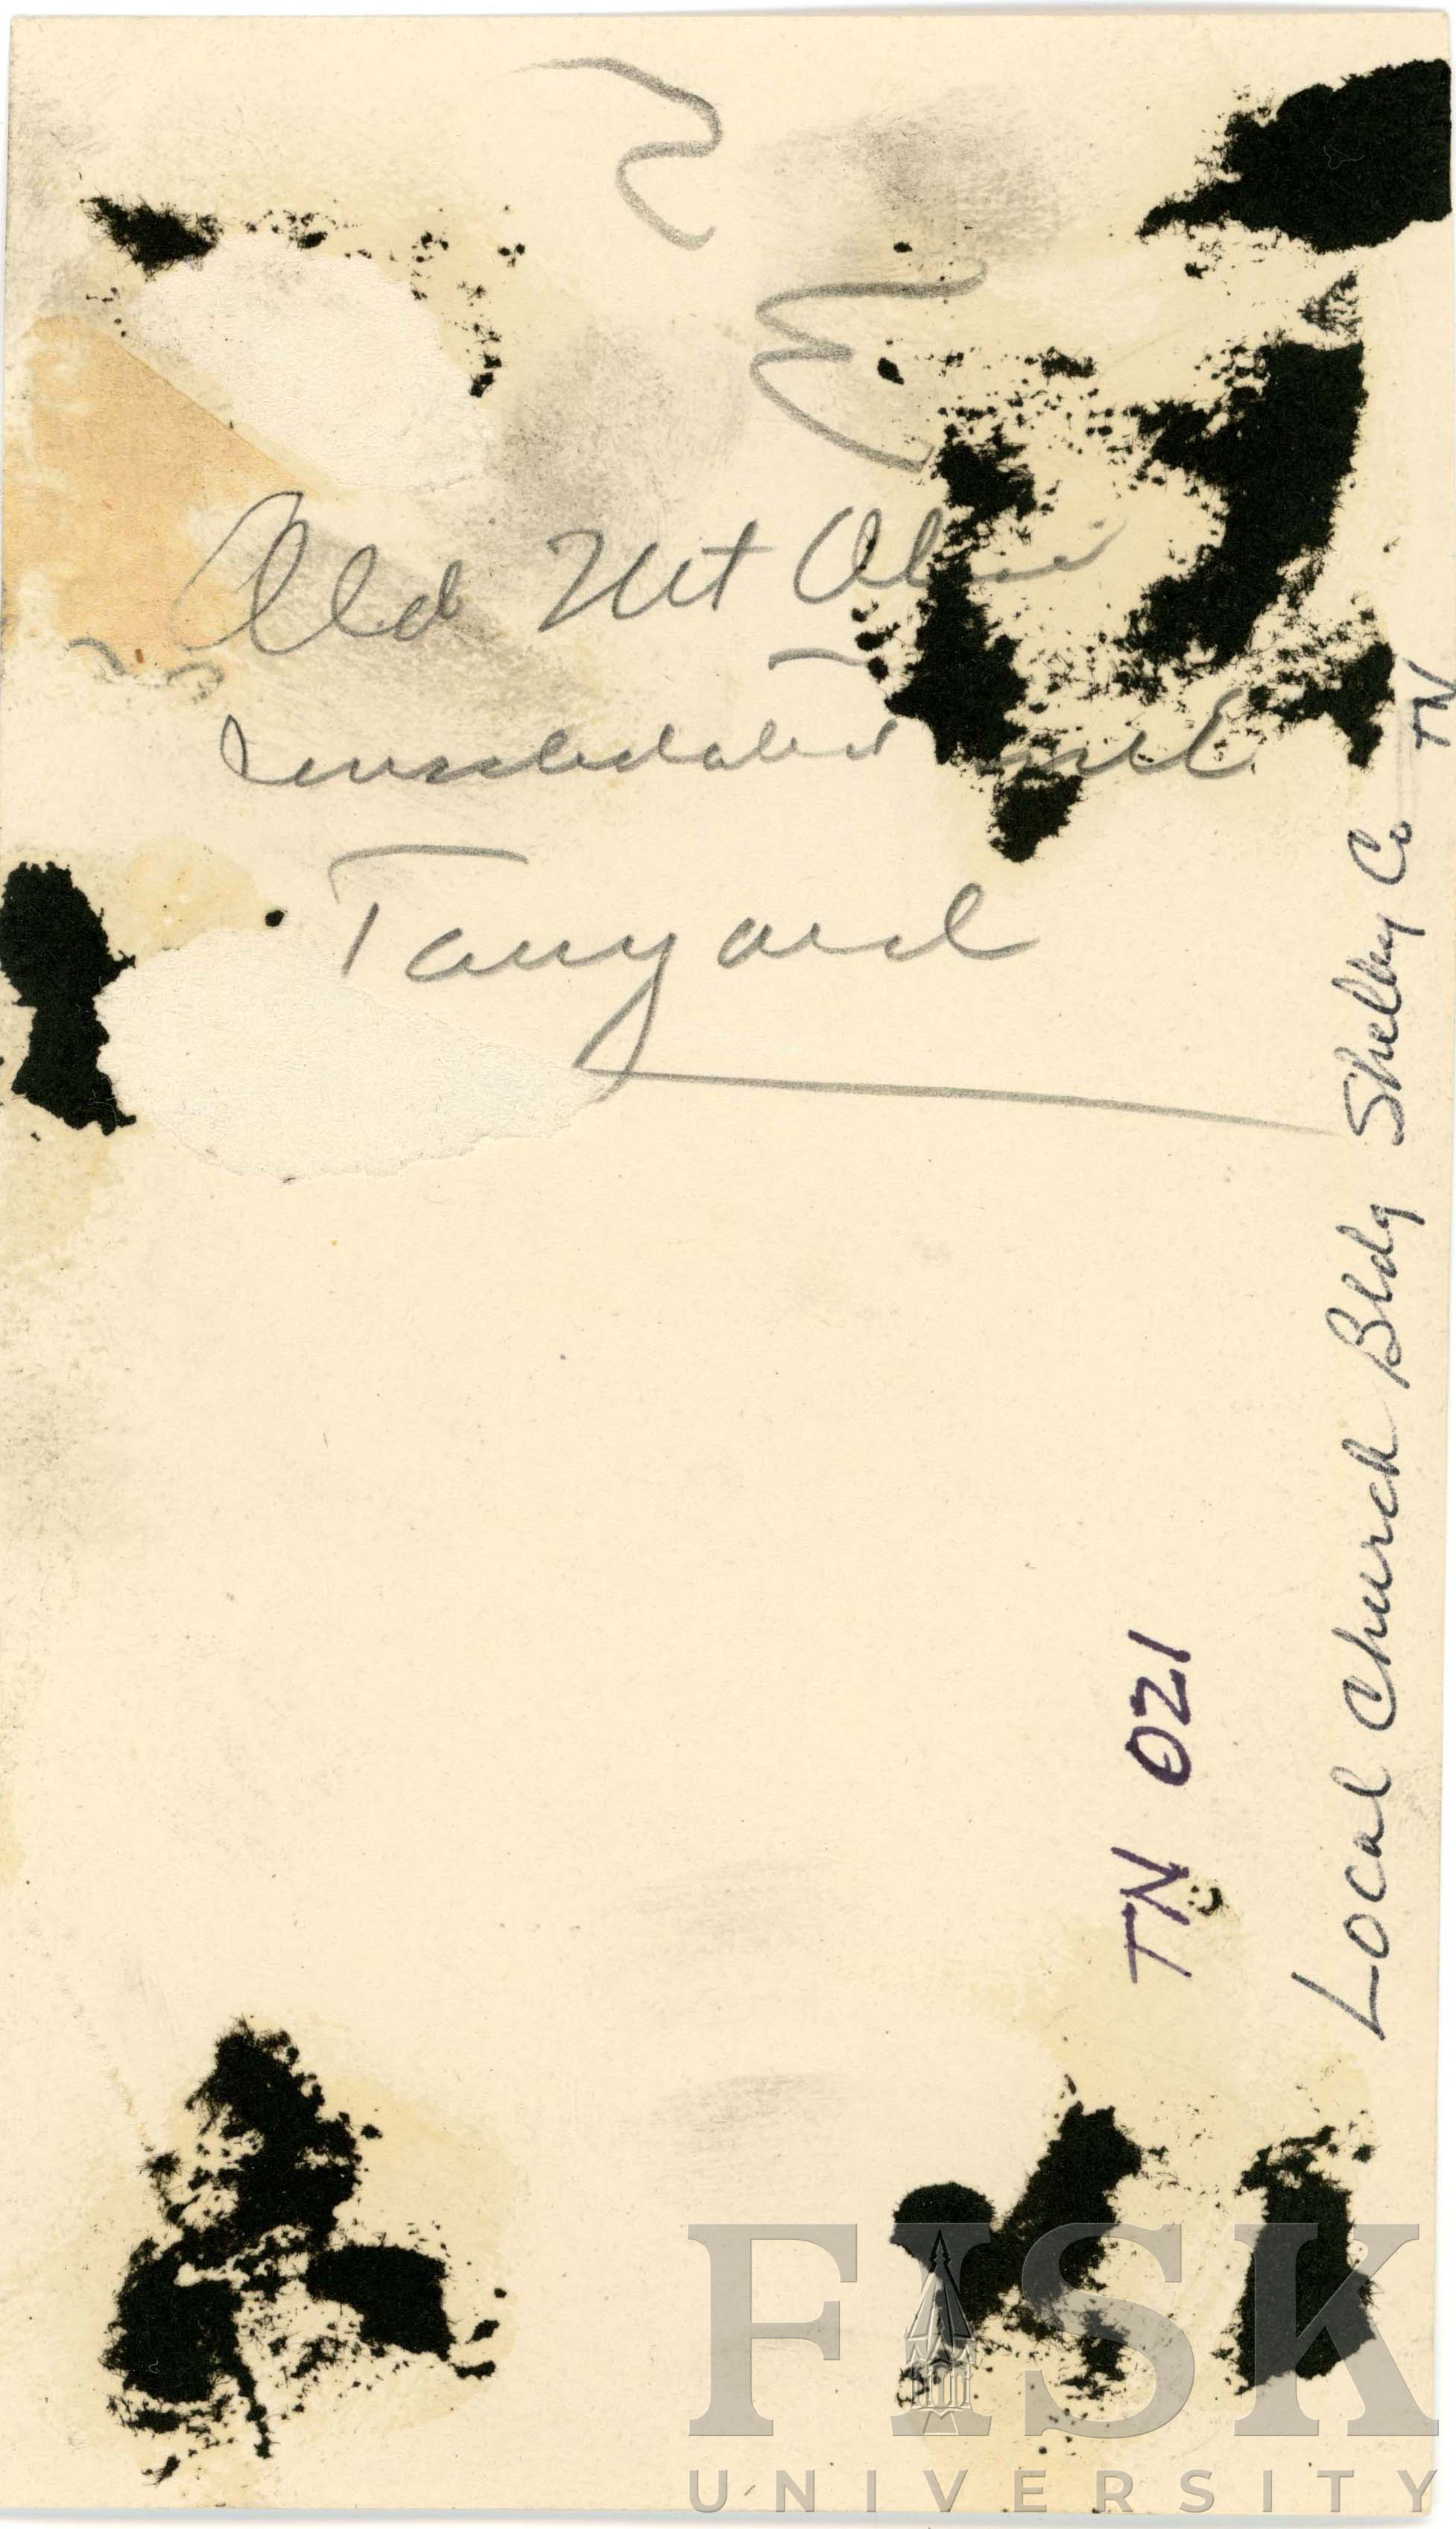 Old Mt Olive
consolidated with
Tanyard
TN 021
Local Church Bldg Shelby Co TN
FISK
UNIVERSITY